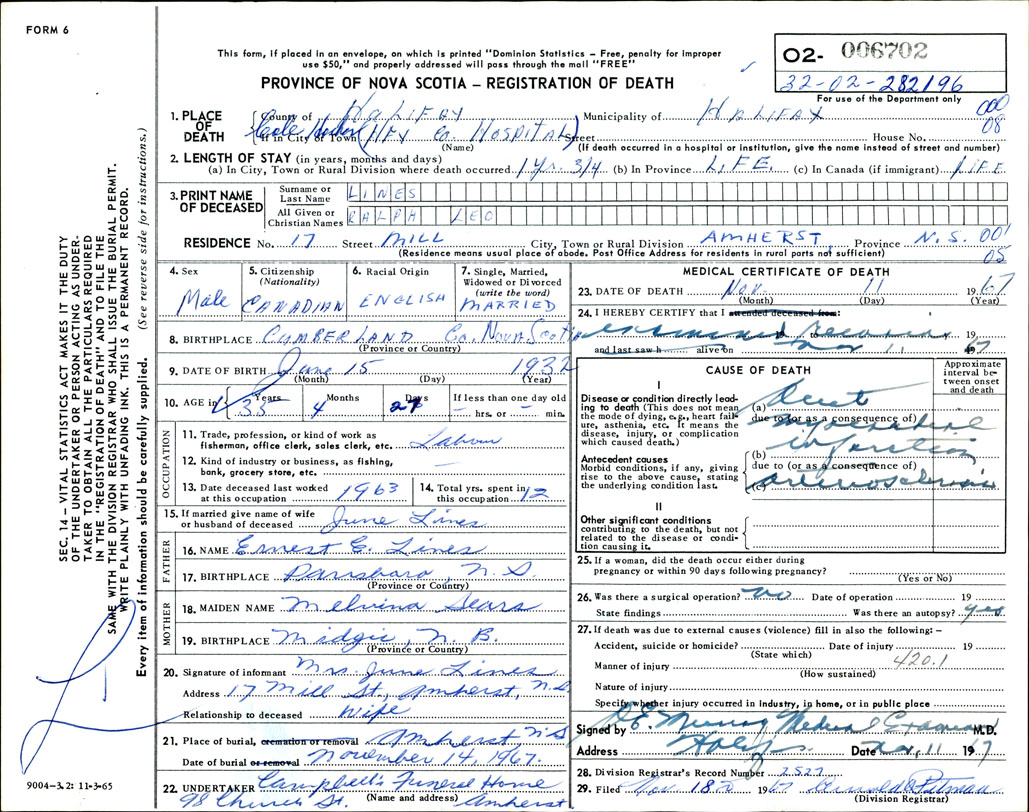 FORM 6
This form, if placed in an envelope, on which is printed "Dominion Statistics – Free, penalty for improper
use $50," and properly addressed will pass through the mail "FREE"
PROVINCE OF NOVA SCOTIA – REGISTRATION OF DEATH
O2- 006702
32-02-282196
For use of the Department only
000
08
1. PLACE OF DEATH County of HALIFAX Municipality of HALIFAX
If in City or Town Cole Harbor (HFX Co. HOSPITAL) Street House No.
(Name) (If death occurred in a hospital or institution, give the name instead of street and number)
2. LENGTH OF STAY (in years, months and days)
(a) In City, Town or Rural Division where death occurred 1 yr. 3/4 (b) In Province LIFE (c) In Canada (if immigrant) LIFE
3. PRINT NAME OF DECEASED Surname or Last Name LINES
All Given or Christian Names RALPH LEO
RESIDENCE No. 17 Street MILL City, Town or Rural Division AMHERST Province N.S. 001
(Residence means usual place of abode. Post Office Address for residents in rural parts not sufficient) 05
4. Sex Male
5. Citizenship (Nationality) CANADIAN
6. Racial Origin ENGLISH
7. Single, Married, Widowed or Divorced (write the word) MARRIED
8. BIRTHPLACE CUMBERLAND Co. Nova Scotia
(Province or Country)
9. DATE OF BIRTH June 15 1932
(Month) (Day) (Year)
10. AGE in Years 35 Months 4 Days 27 If less than one day old – hrs. or – min.
OCCUPATION
11. Trade, profession, or kind of work as fisherman, office clerk, sales clerk, etc. Labour
12. Kind of industry or business, as fishing, bank, grocery store, etc. –
13. Date deceased last worked at this occupation 1963
14. Total yrs. spent in this occupation 12
15. If married give name of wife or husband of deceased June Lines
FATHER
16. NAME Ernest E. Lines
17. BIRTHPLACE Parrsboro, N.S.
(Province or Country)
MOTHER
18. MAIDEN NAME Melvina Sears
19. BIRTHPLACE Midgic, N. B.
(Province or Country)
20. Signature of informant Mrs. June Lines
Address 17 Mill St, Amherst, N.S.
Relationship to deceased Wife
21. Place of burial, cremation or removal Amherst N S
Date of burial or removal November 14, 1967.
22. UNDERTAKER Campbell's Funeral Home
98 Church St. (Name and address) Amherst
MEDICAL CERTIFICATE OF DEATH
23. DATE OF DEATH Nov. 11 1967
(Month) (Day) (Year)
24. I HEREBY CERTIFY that I attended deceased from:
examined to 19
and last saw h alive on Nov 11 1967
CAUSE OF DEATH
Approximate interval between onset and death
I
Disease or condition directly leading to death (This does not mean the mode of dying, e.g., heart failure, asthenia, etc. It means the disease, injury, or complication which caused death.)
(a) Acute
due to (or as a consequence of) myocardial
infarction
Antecedent causes
Morbid conditions, if any, giving rise to the above cause, stating the underlying condition last.
(b)
due to (or as a consequence of)
(c) arteriosclerosis
II
Other significant conditions
contributing to the death, but not related to the disease or condition causing it.
25. If a woman, did the death occur either during pregnancy or within 90 days following pregnancy?
(Yes or No)
26. Was there a surgical operation? No Date of operation 19
State findings Was there an autopsy? yes
27. If death was due to external causes (violence) fill in also the following: –
Accident, suicide or homicide? Date of injury 19
(State which) 420.1
Manner of injury
(How sustained)
Nature of injury
Specify whether injury occurred in industry, in home, or in public place
Signed by D.E. Murray Medical Examiner M.D.
Address Date Nov. 11 1967
28. Division Registrar's Record Number 2527
29. Filed Nov 18 1967
(Division Registrar)
SEC. 14 – VITAL STATISTICS ACT MAKES IT THE DUTY
OF THE UNDERTAKER OR PERSON ACTING AS UNDER-
TAKER TO OBTAIN ALL THE PARTICULARS REQUIRED
IN THE "REGISTRATION OF DEATH" AND TO FILE THE
SAME WITH THE DIVISION REGISTRAR WHO SHALL ISSUE THE BURIAL PERMIT.
WRITE PLAINLY WITH UNFADING INK. THIS IS A PERMANENT RECORD.
Every item of information should be carefully supplied. (See reverse side for instructions.)
9004-3.2: 11-3-65